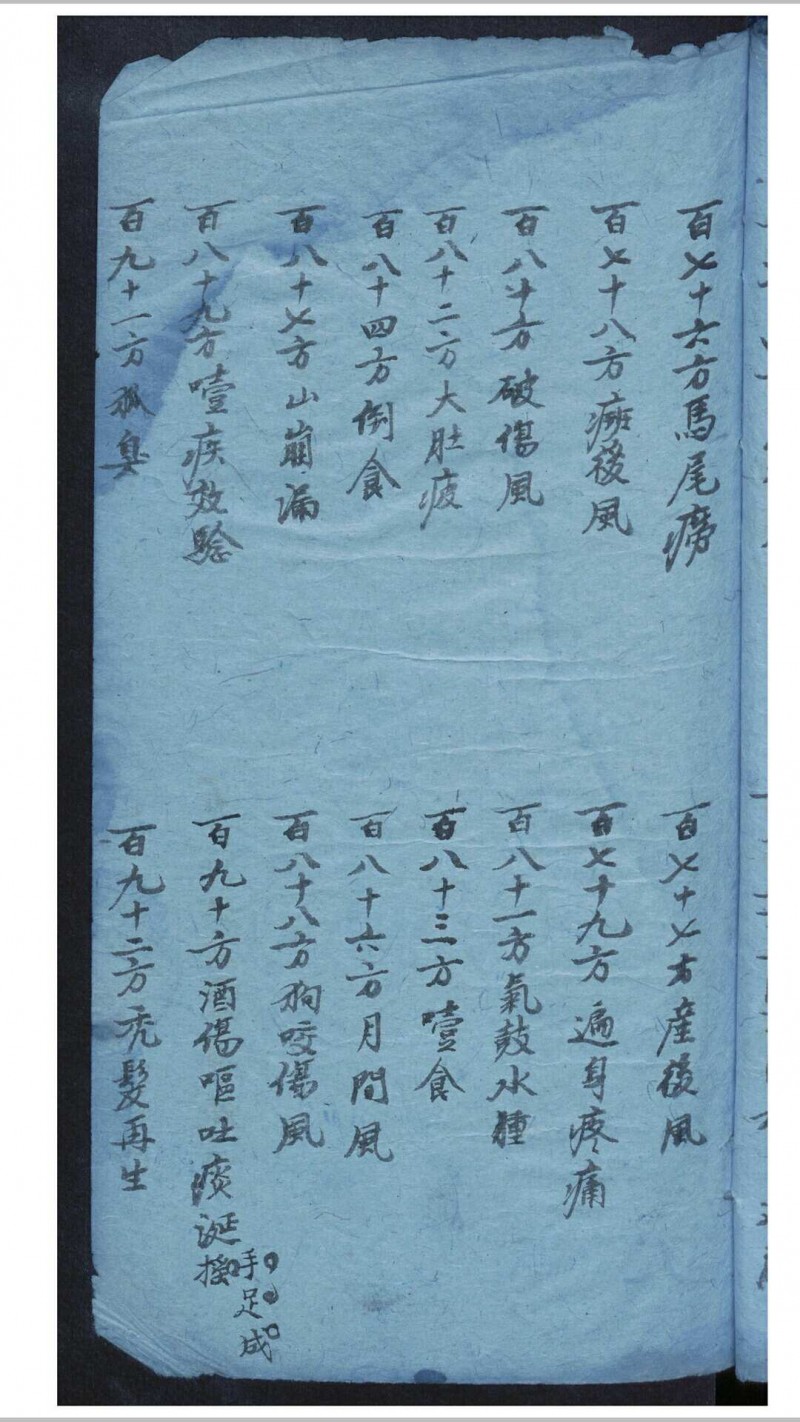 百七十六方馬尾癆
百七十七方產後風
百七十八方癍後風
百七十九方遍身疼痛
百八十方破傷風
百八十一方氣鼓水腫
百八十二方大肚疲
百八十三方噎食
百八十四方倒食
百八十六方月間風
百八十七方山崩漏
百八十八方狗咬傷風
百八十九方噎疾效騐
百九十方酒傷嘔吐痰涎搐
手足成
百九十一方狐臭
百九十二方禿髮再生